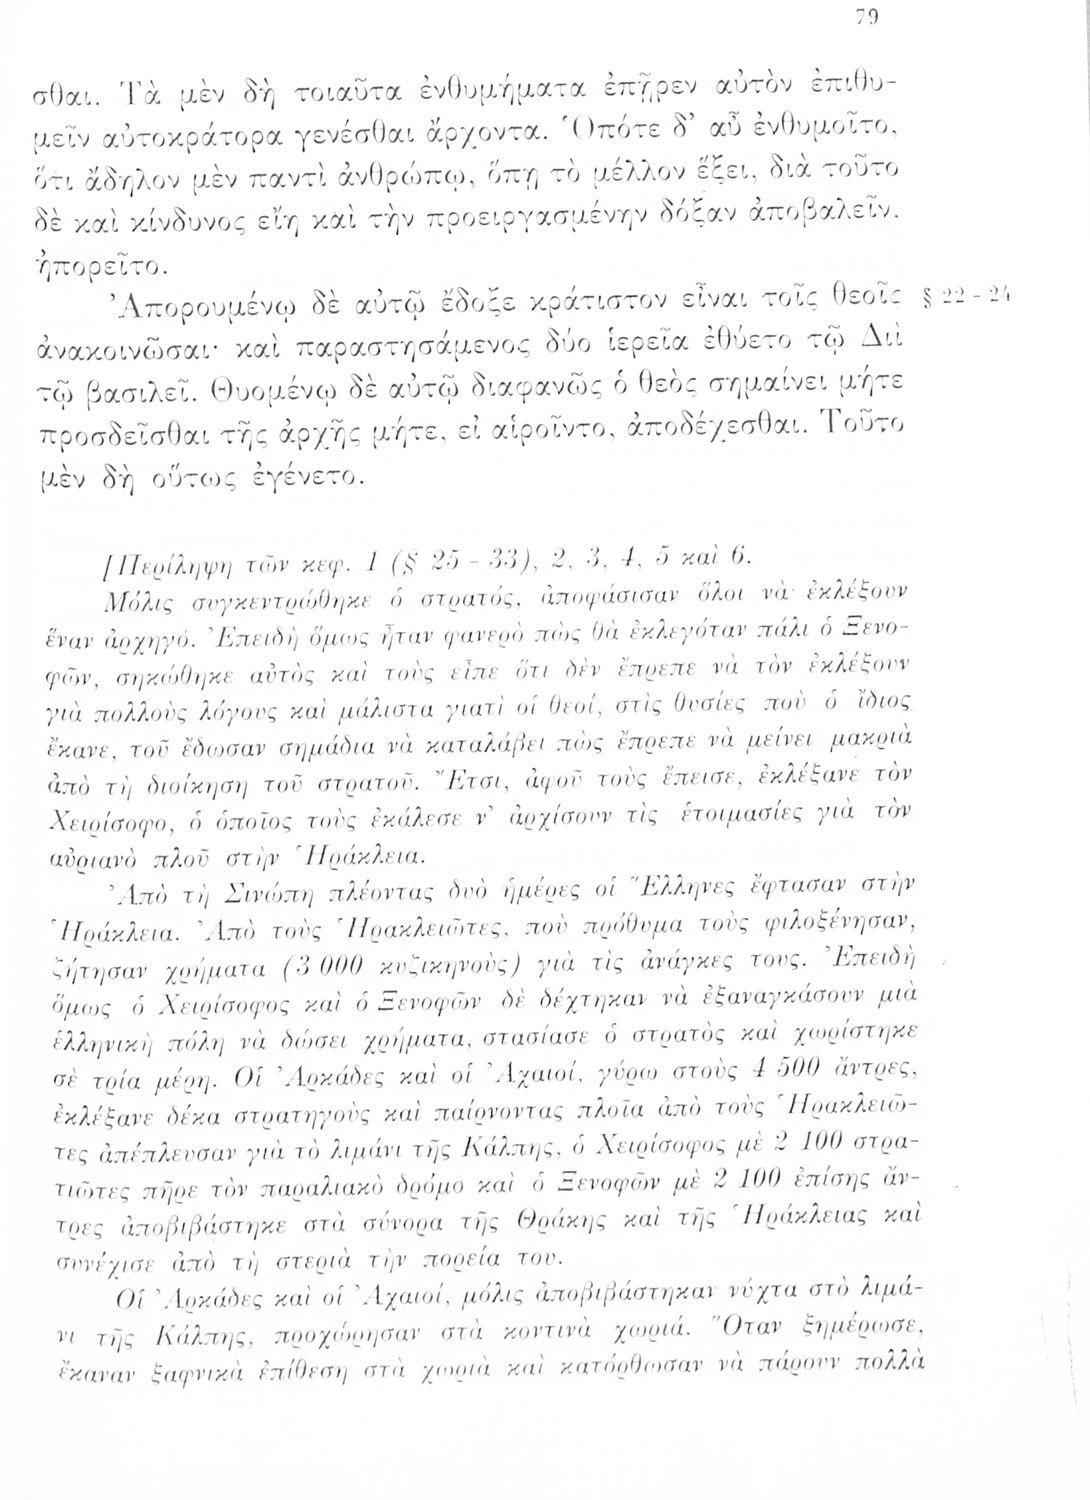 79
σθαι. Τὰ μὲν δὴ τοιαῦτα ἐνθυμήματα ἐπῇρεν αὐτὸν ἐπιθυ-
μεῖν αὐτοκράτορα γενέσθαι ἄρχοντα. Ὁπότε δ’ αὖ ἐνθυμοῖτο,
ὅτι ἄδηλον μὲν παντὶ ἀνθρώπῳ, ὅπῃ τὸ μέλλον ἕξει, διὰ τοῦτο
δὲ καὶ κίνδυνος εἴη καὶ τὴν προειργασμένην δόξαν ἀποβαλεῖν,
ἠπορεῖτο.
Ἀπορουμένῳ δὲ αὐτῷ ἔδοξε κράτιστον εἶναι τοῖς θεοῖς § 22 - 24
ἀνακοινῶσαι· καὶ παραστησάμενος δύο ἱερεῖα ἐθύετο τῷ Διὶ
τῷ βασιλεῖ. Θυομένῳ δὲ αὐτῷ διαφανῶς ὁ θεὸς σημαίνει μήτε
προσδεῖσθαι τῆς ἀρχῆς μήτε, εἰ αἱροῖντο, ἀποδέχεσθαι. Τοῦτο
μὲν δὴ οὕτως ἐγένετο.
[Περίληψη τῶν κεφ. 1 (§ 25 - 33), 2, 3, 4, 5 καὶ 6.
Μόλις συγκεντρώθηκε ὁ στρατός, ἀποφάσισαν ὅλοι νὰ ἐκλέξουν
ἕναν ἀρχηγό. Ἐπειδὴ ὅμως ἦταν φανερὸ πὼς θὰ ἐκλεγόταν πάλι ὁ Ξενο-
φῶν, σηκώθηκε αὐτὸς καὶ τοὺς εἶπε ὅτι δὲν ἔπρεπε νὰ τὸν ἐκλέξουν
γιὰ πολλοὺς λόγους καὶ μάλιστα γιατὶ οἱ θεοί, στὶς θυσίες ποὺ ὁ ἴδιος
ἔκανε, τοῦ ἔδωσαν σημάδια νὰ καταλάβει πὼς ἔπρεπε νὰ μείνει μακριὰ
ἀπὸ τὴ διοίκηση τοῦ στρατοῦ. Ἔτσι, ἀφοῦ τοὺς ἔπεισε, ἐκλέξανε τὸν
Χειρίσοφο, ὁ ὁποῖος τοὺς ἐκάλεσε ν’ ἀρχίσουν τὶς ἑτοιμασίες γιὰ τὸν
αὐριανὸ πλοῦ στὴν Ἡράκλεια.
Ἀπὸ τὴ Σινώπη πλέοντας δυὸ ἡμέρες οἱ Ἕλληνες ἔφτασαν στὴν
Ἡράκλεια. Ἀπὸ τοὺς Ἡρακλειῶτες, ποὺ πρόθυμα τοὺς φιλοξένησαν,
ζήτησαν χρήματα (3 000 κυζικηνοὺς) γιὰ τὶς ἀνάγκες τους. Ἐπειδὴ
ὅμως ὁ Χειρίσοφος καὶ ὁ Ξενοφῶν δὲ δέχτηκαν νὰ ἐξαναγκάσουν μιὰ
ἑλληνικὴ πόλη νὰ δώσει χρήματα, στασίασε ὁ στρατὸς καὶ χωρίστηκε
σὲ τρία μέρη. Οἱ Ἀρκάδες καὶ οἱ Ἀχαιοί, γύρω στοὺς 4 500 ἄντρες,
ἐκλέξανε δέκα στρατηγοὺς καὶ παίρνοντας πλοῖα ἀπὸ τοὺς Ἡρακλειῶ-
τες ἀπέπλευσαν γιὰ τὸ λιμάνι τῆς Κάλπης, ὁ Χειρίσοφος μὲ 2 100 στρα-
τιῶτες πῆρε τὸν παραλιακὸ δρόμο καὶ ὁ Ξενοφῶν μὲ 2 100 ἐπίσης ἄν-
τρες ἀποβιβάστηκε στὰ σύνορα τῆς Θράκης καὶ τῆς Ἡράκλειας καὶ
συνέχισε ἀπὸ τὴ στεριὰ τὴν πορεία του.
Οἱ Ἀρκάδες καὶ οἱ Ἀχαιοί, μόλις ἀποβιβάστηκαν νύχτα στὸ λιμά-
νι τῆς Κάλπης, προχώρησαν στὰ κοντινὰ χωριά. Ὅταν ξημέρωσε,
ἔκαναν ξαφνικὰ ἐπίθεση στὰ χωριὰ καὶ κατόρθωσαν νὰ πάρουν πολλὰ